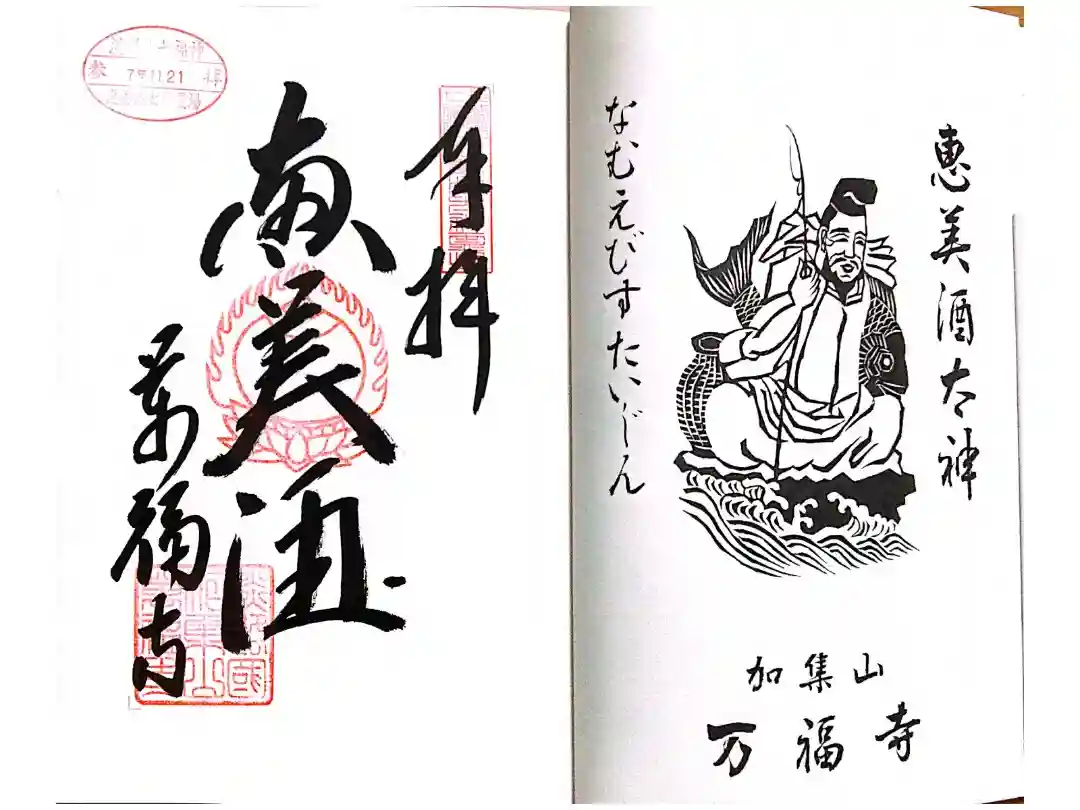 奉拝
恵美酒
萬福寺
7年11.21
恵美酒太神
なむえびすたいじん
加集山
万福寺